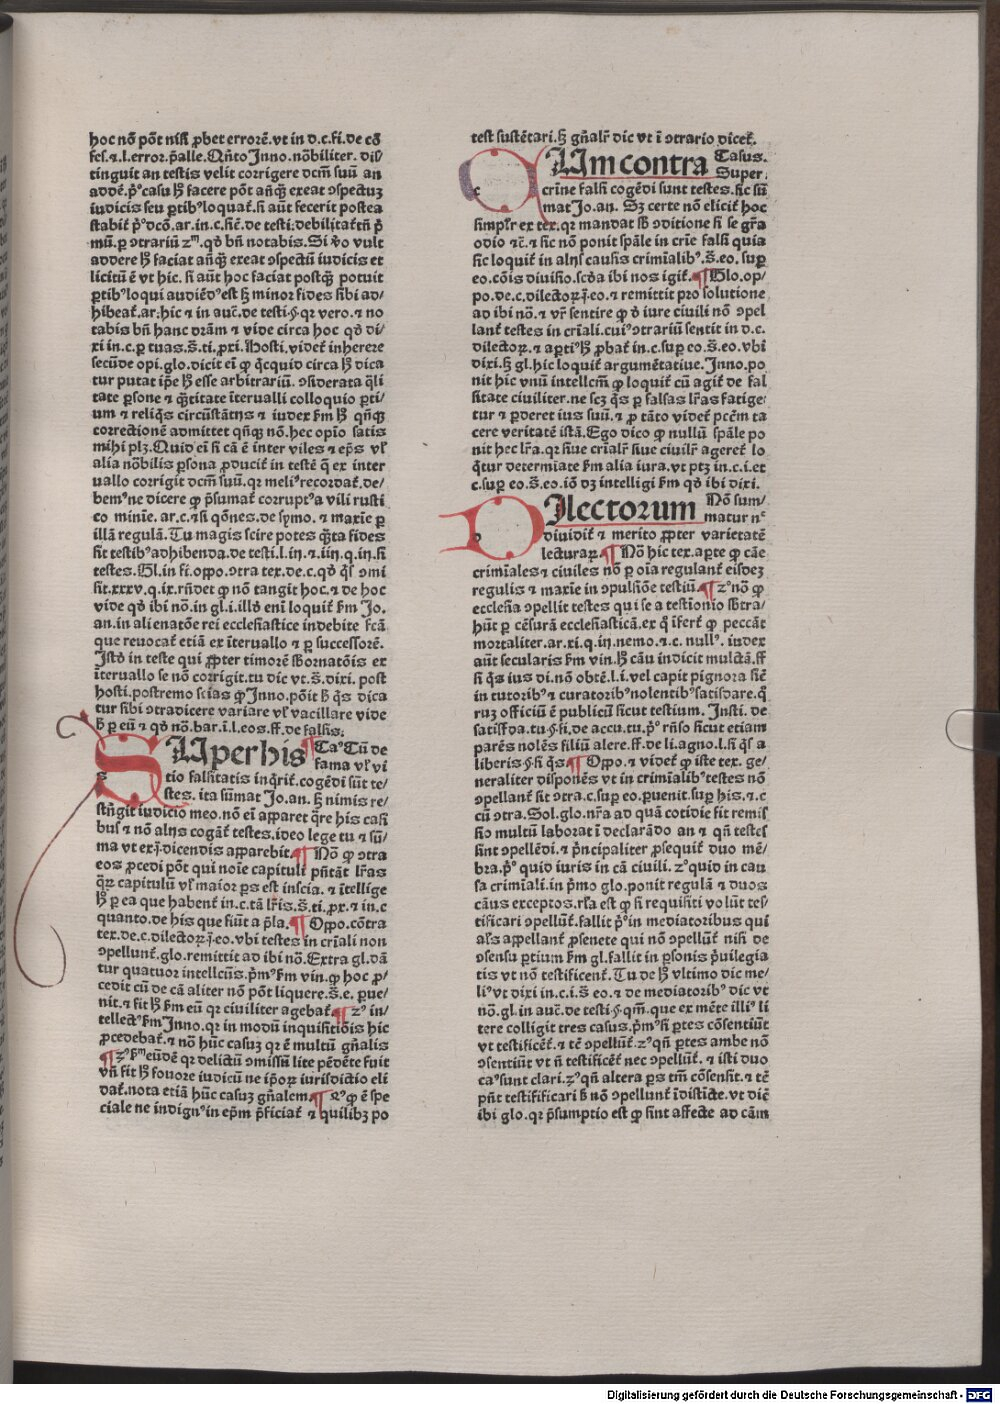 hoc nõ põt nisi ꝓbet errorẽ.vt in d.c.fi.de cõ
fes.⁊.l.error.ꝑalle.Qñto Inno.nõbiliter.dis
tinguit an testis velit corrigere dcm̃ suũ an
addẽ.pº casu hꝫ facere põt añqꝫ exeat ɔspectuꝫ
iudicis seu ꝑtibꝰ loquat̃.si aũt fecerit postea
stabit̃ pº dcõ.ar.in c.sic̃.de testi:debilitat̃ tñ p̃
mũ.ꝑ ɔtrariũ zᵐ.qð bñ notabis.Si ꝟo vult
addere hꝫ faciat añqꝫ exeat ɔspectũ iudicis et
licitũ ẽ vt hic.si aũt hoc faciat postqꝫ potuit
ꝑtibꝰ loqui audiẽdꝰ est hꝫ minor fides sibi ad/
hibeat̃.ar:hic ⁊ in auc̃.de testi.§.qr vero.⁊ no
tabis bñ hanc dr̃am ⁊ vide circa hoc qð di/
xi in.c.ꝑ tuas.s̃.ti.ꝓxi.Hosti.videt̃ inherere
secũde opi.glo.dicit ei̇̃ ꝙ q̃cquid circa hꝫ dica
tur putat ip̃e hꝫ esse arbitrariũ.ɔsiderata q̃li
tate ꝑsone ⁊ q̃titate ĩterualli colloquio ꝑti/
um ⁊ reliq̃s circũstãtijs ⁊ iudex ẜm hꝫ qñqꝫ
correctionẽ admittet qñqꝫ nõ.hec opĩo satis
mihi plꝫ.Quid ei̇̃ si cã ẽ inter viles ⁊ ep̃s vl̃
alia nõbilis ꝑsona ꝓducit̃ in testẽ q̃ ex inter
uallo corrigit dcm̃ suũ.qr meliꝰ recordat̃.de/
bemꝰ ne dicere ꝙ p̃sumat̃ corruptꝰ a vili rusti
co minie̊.ar.c.⁊ si qõnes.de symo.⁊ maxĩe ꝑ
illã regulã.Tu magis scire potes q̃ta fides
sit testibꝰ adhibenda.de testi.l.iij.⁊.iiij.q.iij.si
testes.Gl.in fi.oppo.ɔtra tex.de.c.qð q̃s ɔmi
sit.xxxv.q.ix.rñdet ꝙ nõ tangit hoc.⁊ de hoc
vide qð ibi nõ.in gl.i.illð eni̇̃ loquit̃ ẜm Jo.
an.in alienatõe rei ecclesiastice indebite fcã
que reuocat̃ etiã ex ĩteruallo ⁊ ꝑ successorẽ.
Istð in teste qui ꝓpter timorẽ sꝫbornatõis ex
ĩteruallo se nõ corrigit.tu dic vt.s̃.dixi.post
hosti.postremo scias ꝙ Inno.põit hꝫ q̃s dica
tur sibi ɔtradicere variare vl̃ vacillare vide
hꝫ ꝑ eũ ⁊ qð nõ.bar.i.l.eos.ff.de falsis:
SUper his ¶ Caꝰ Cũ de
fama vl̃ vi
tio falsitatis inq̃rit̃.cogẽdi sũt te/
stes.ita sũmat Jo.an.hꝫ nimis re/
stñgit iudicio meo.nõ ei̇̃ apparet q̃re his casi
bus ⁊ nõ alijs cogãt̃ testes.ideo lege tu ⁊ sũ/
ma vt ex.j.dicendis apparebit.¶ Nõ ꝙ ɔtra
eos ꝓcedi põt qui noĩe capituli pñtãt l̃ras
q̃ꝫ capitulũ vl̃ maior ꝑs est inscia.⁊ ĩtellige
hꝫ ꝑ ea que habent̃ in.c.tã l̃ris.s̃.ti.ꝓx.⁊ in.c
quanto.de his que siũt a p̃la.¶ Oppo.cõtra
tex.de.c.dilectoꝝ.j.eo.vbi testes in crĩali non
ɔpellunt̃.glo.remittit ad ibi nõ.Extra gl.dã
tur quatuor intellc̃us.p̃mꝰ ẜm vin.ꝙ hoc ꝓ/
cedit cũ de cã aliter nõ põt liquere.s̃.e.ꝑue/
nit.⁊ sit hꝫ ẜm eũ qr ciuiliter agebat̃.¶ zꝰ in/
tellectꝰ ẜm Inno.qr in modũ inquisitiõis hic
ꝓcedebat̃.⁊ nõ hũc casuꝫ qr ẽ multũ gñalis
¶ zꝰ ẜm eũdẽ qr delictũ ɔmissũ lite pẽdẽte fuit
vñ sit hꝫ fouore iudicũ ne ip̃oꝝ iurisdictio eli
dat̃.nota etiã hũc casuꝫ gñalem.¶ qꝰ ꝙ ẽ spe
ciale ne indignꝰ in ep̃m p̃ficiat̃ ⁊ quilibꝫ po
test sustẽtari.hꝫ gñalr̃ dic vt i̇̃ ɔtrario dicet̃.
CUm contra Casus.
Super
crĩne falsi cogẽdi sunt testes.sic sũ
mat Jo.an.Sꝫ certe nõ elicit̃ hoc
simpl̃r ex tex.qr mandat sꝫ ɔditione si se gr̃a
odio ⁊c̃.⁊ sic nõ ponit spãle in crĩe falsi quia
sic loquit̃ in alijs causis crimĩalibꝰ.s̃.eo.suꝑ
eo.cõis diuisio.scðа ibi nos igit̃.¶ Glo.op/
po.de.c.dilectoꝝ.j.eo.⁊ remittit pro solutione
ad ibi nõ.⁊ vr̃ sentire ꝙ ð iure ciuili nõ ɔpel
lant̃ testes in crĩali.cuiꝰ ɔtrariũ sentit in d.c.
dilectoꝝ.⁊ aꝑtiꝰ hꝫ ꝓbat̃ in.c.suꝑ eo.s̃.eo.vbi
dixi.hꝫ gl.hic loquit̃ argumẽtatiue.Inno.po
nit hic vnũ intellcm̃ ꝙ loquit̃ cũ agit̃ de fal
sitate ciuiliter.ne scꝫ q̃s ꝑ falsas l̃ras fatige
tur ⁊ ꝑderet ius suũ.⁊ ꝓ tãto videt̃ pcẽm ta
cere veritatẽ istã.Ego dico ꝙ nullũ spãle po
nit hec l̃ra.qr siue crĩalr̃ siue ciuilr̃ ageret̃ lo
q̃tur determĩate ẜm alia iura.vt ptꝫ in.c.i.et
c.suꝑ eo.s̃.eo.iõ dꝫ intelligi ẜm qð ibi dixi.
DIlectorum Nõ sum/
matur nᶜ
diuidit̃ ⁊ merito ꝓpter varietatẽ
lecturaꝝ.¶ Nõ hic tex.aꝑte ꝙ cãe
crimĩales ⁊ ciuiles nõ ꝑ oĩa regulant̃ eisdeꝫ
regulis ⁊ maxĩe in ɔpulsiõe testiũ.¶ zꝰ nõ ꝙ
ecclesia ɔpellit testes qui se a testĩonio sꝫtra/
hũt ꝑ cẽsurã ecclesiasticã.ex q̃ ĩfert̃ ꝙ peccãt
mortaliter.ar.xi.q.iij.nemo.⁊.c.nullꝰ.iudex
aũt secularis ẜm vin.hꝫ cãu indicit mulctã.ff
si q̃s ius di.nõ obtẽ.l.i.vel capit pignora sic̃
in tutoribꝰ ⁊ curatoribꝰ nolentibꝰ satisdare.q̃
ruꝫ officiũ ẽ publicũ sicut testium.Insti.de
satisfda.tu.§.fi.de accu.tu.pº.rñso sicut etiam
parẽs nolẽs filiũ alere.ff.de li.agno.l.si q̃s a
liberis.§.si q̃s.¶ Oppo.⁊ videt̃ ꝙ iste tex.ge/
neraliter disponẽs vt in crimĩalibꝰ testes nõ
ɔpellant̃ sit ɔtra.c.suꝑ eo.ꝑuenit.suꝑ his.⁊.c
cũ ɔtra.Sol.glo.nr̃a ad quã cotidie fit remis
sio multũ laborat i̇̃ declarãdo an ⁊ qñ testes
sint ɔpellẽdi.⁊ p̃ncipaliter ꝓsequit̃ duo mẽ/
bra.pº quid iuris in cã ciuili.zº quid in cau
sa crimĩali.in p̃mo glo.ponit regulã ⁊ duos
cãus exceptos.rl̃a est ꝙ si requisiti volũt tes/
tificari ɔpellũt̃.fallit pº in mediatoribus qui
al̃s appellant̃ ꝓsenete qui nõ ɔpellũt̃ nisi de
ɔsensu ꝑtium ẜm gl.fallit in ꝑsonis p̃uilegia
tis vt nõ testificent̃.Tu de hꝫ vltimo dic me/
liꝰ vt dixi in.c.i.s̃ eo.⁊ de mediatoribꝰ dic vt
nõ.gl.in auc̃.de testi.§.qm̃.que ex mẽte illiꝰ li
tere colligit tres casus.p̃mꝰ si ꝑtes cõsentiũt
vt testificẽt̃.⁊ tẽ ɔpellũt̃.zꝰ qñ ꝑtes ambe nõ
ɔsentiũt vt ñ testificẽt̃ nec ɔpellũt̃.⁊ isti duo
caꝰ sunt clari.zꝰ qñ altera ꝑs tm̃ cõsensit.⁊ tẽ
pñt testifificari hꝫ nõ ɔpellunt̃ ĩdistĩcte.vt dic̃
ibi glo.qr p̃sumptio est ꝙ sint affecte ad cãm
Digitalisierung gefördert durch die Deutsche Forschungsgemeinschaft - DFG